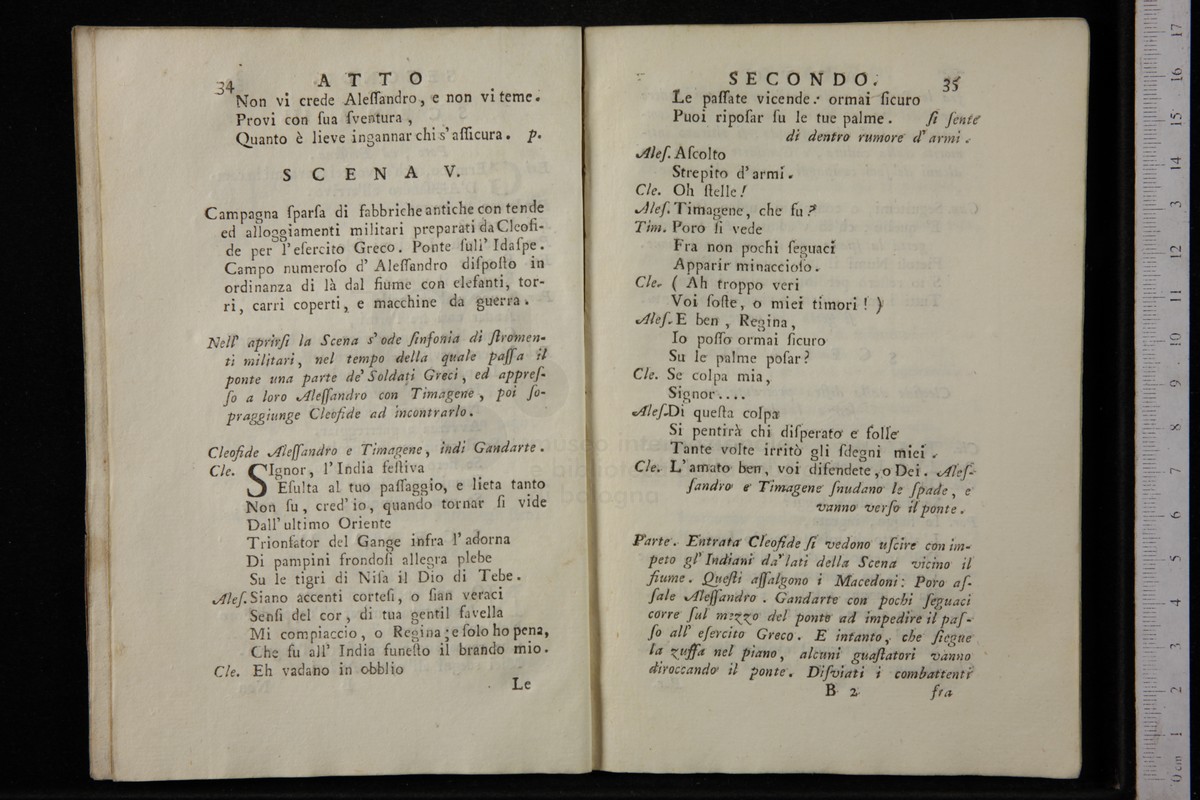 34 ATTO
Non vi crede Aleſſandro, e non vi teme.
Provi con ſua ſventura,
Quanto è lieve ingannar chi s'aſſicura. p.
SCENA V.
Campagna ſparſa di fabbriche antiche con tende
ed alloggiamenti militari preparati da Cleofi-
de per l'eſercito Greco. Ponte ſull' Idaſpe.
Campo numeroſo d' Aleſſandro diſpoſto in
ordinanza di là dal fiume con elefanti, tor-
ri, carri coperti, e macchine da guerra.
Nell' aprirſi la Scena s' ode ſinfonia di ſtromen-
ti militari, nel tempo della quale paſſa il
ponte una parte de' Soldati Greci, ed appreſ-
ſo a loro Aleſſandro con Timagene, poi ſo-
praggiunge Cleofide ad incontrarlo.
Cleofide Aleſſandro e Timagene, indi Gandarte.
Cle. SIgnor, l'India feſtiva
Eſulta al tuo paſſaggio, e lieta tanto
Non fu, cred' io, quando tornar ſi vide
Dall' ultimo Oriente
Trionfator del Gange infra l' adorna
Di pampini frondoſi allegra plebe
Su le tigri di Niſa il Dio di Tebe.
Aleſ. Siano accenti corteſi, o ſian veraci
Senſi del cor, di tua gentil favella
Mi compiaccio, o Regina; e ſolo ho pena,
Che fu all' India funeſto il brando mio.
Cle. Eh vadano in obblio
Le
SECONDO. 35
Le paſſate vicende: ormai ſicuro
Puoi ripoſar ſu le tue palme. ſi ſente
di dentro rumore d' armi.
Aleſ. Aſcolto
Strepito d' armi.
Cle. Oh ſtelle!
Aleſ. Timagene, che fu?
Tim. Poro ſi vede
Fra non pochi ſeguaci
Apparir minaccioſo.
Cle. ( Ah troppo veri
Voi foſte, o miei timori! )
Aleſ. E ben, Regina,
Io poſſo ormai ſicuro
Su le palme poſar?
Cle. Se colpa mia,
Signor....
Aleſ. Di queſta colpa
Si pentirà chi diſperato e folle
Tante volte irritò gli ſdegni miei.
Cle. L' amato ben, voi difendete, o Dei. Aleſ-
ſandro e Timagene ſnudano le ſpade, e
vanno verſo il ponte.
Parte. Entrata Cleofide ſi vedono uſcire con im-
peto gl' Indiani da' lati della Scena vicino il
fiume. Queſti aſſalgono i Macedoni: Poro aſ-
ſale Aleſſandro. Gandarte con pochi ſeguaci
corre ſul mezzo del ponte ad impedire il paſ-
ſo all' eſercito Greco. E intanto, che ſiegue
la zuffa nel piano, alcuni guaſtatori vanno
diroccando il ponte. Diſviati i combattenti
B 2 fra